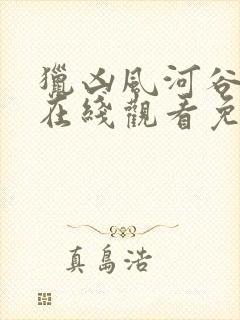 獵凶風河谷
在綫觀看免
真島浩